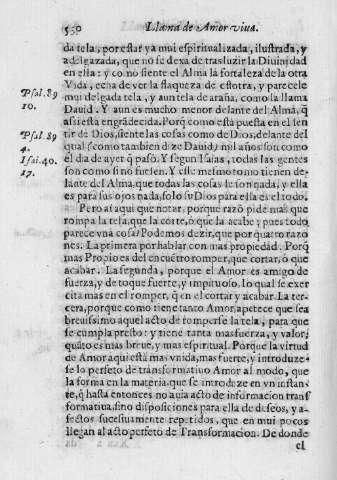 550 Llama de Amor viva.
da tela, por estar ya mui espiritualizada, ilustrada, y
adelgazada, que no se dexa de trasluzir la Divinidad
en ella: y como siente el Alma la fortaleza de la otra
Vida, echa de ver la flaqueza de estotra, y parecele
mui delgada tela, y aun tela de araña, como la llama
David. Y aun es mucho menor delante del Alma, q̃
assi està engrãdecida. Porq̃ como està puesta en el sen
tir de Dios, siente las cosas como de Dios, delante del
qual (como tambien dize David) mil años son como
el dia de ayer q̃ pasò. Y segun Isaias, todas las gentes
son como si no fuesen. Y esse mesmo tomo tienen de-
lante del Alma, que todas las cosas le son nada, y ella
es para sus ojos nada, solo su Dios para ella es el todo.
Pero ai aqui que notar, porque razõ pide mas que
rompa la tela, que la corte, ò que la acabe; pues todo
parece vna cosa? Podemos dezir, que por quatro razo
nes. La primera por hablar con mas propiedad. Porq̃
mas Propio es del encuẽtro romper, que cortar, ò que
acabar. La segunda, porque el Amor es amigo de
fuerza, y de toque fuerte, y impituoso, lo qual se exer
cita mas en el romper, q̃ en el cortar y acabar. La ter-
cera, porque como tiene tanto Amor, apetece que sea
brevissimo aquel acto de romperse la tela, para que
se cumpla presto: y tiene tanta mas fuerza, y valor,
quãto es mas breve, y mas espiritual. Porque la virtud
de Amor aqui està mas vnida, mas fuerte, y introduze-
se lo perfeto de transformativo Amor al modo, que
la forma en la materia, que se introduze en vn instan-
te, q̃ hasta entonces no avia acto de informacion trans
formativa, sino disposiciones para ella de deseos, y a-
fectos sucesivamente repetidos, que en mui pocos
llegan al acto perfeto de Transformacion. De donde
el
Psal. 89
10.
Psal. 89
4.
Isai. 40.
17.